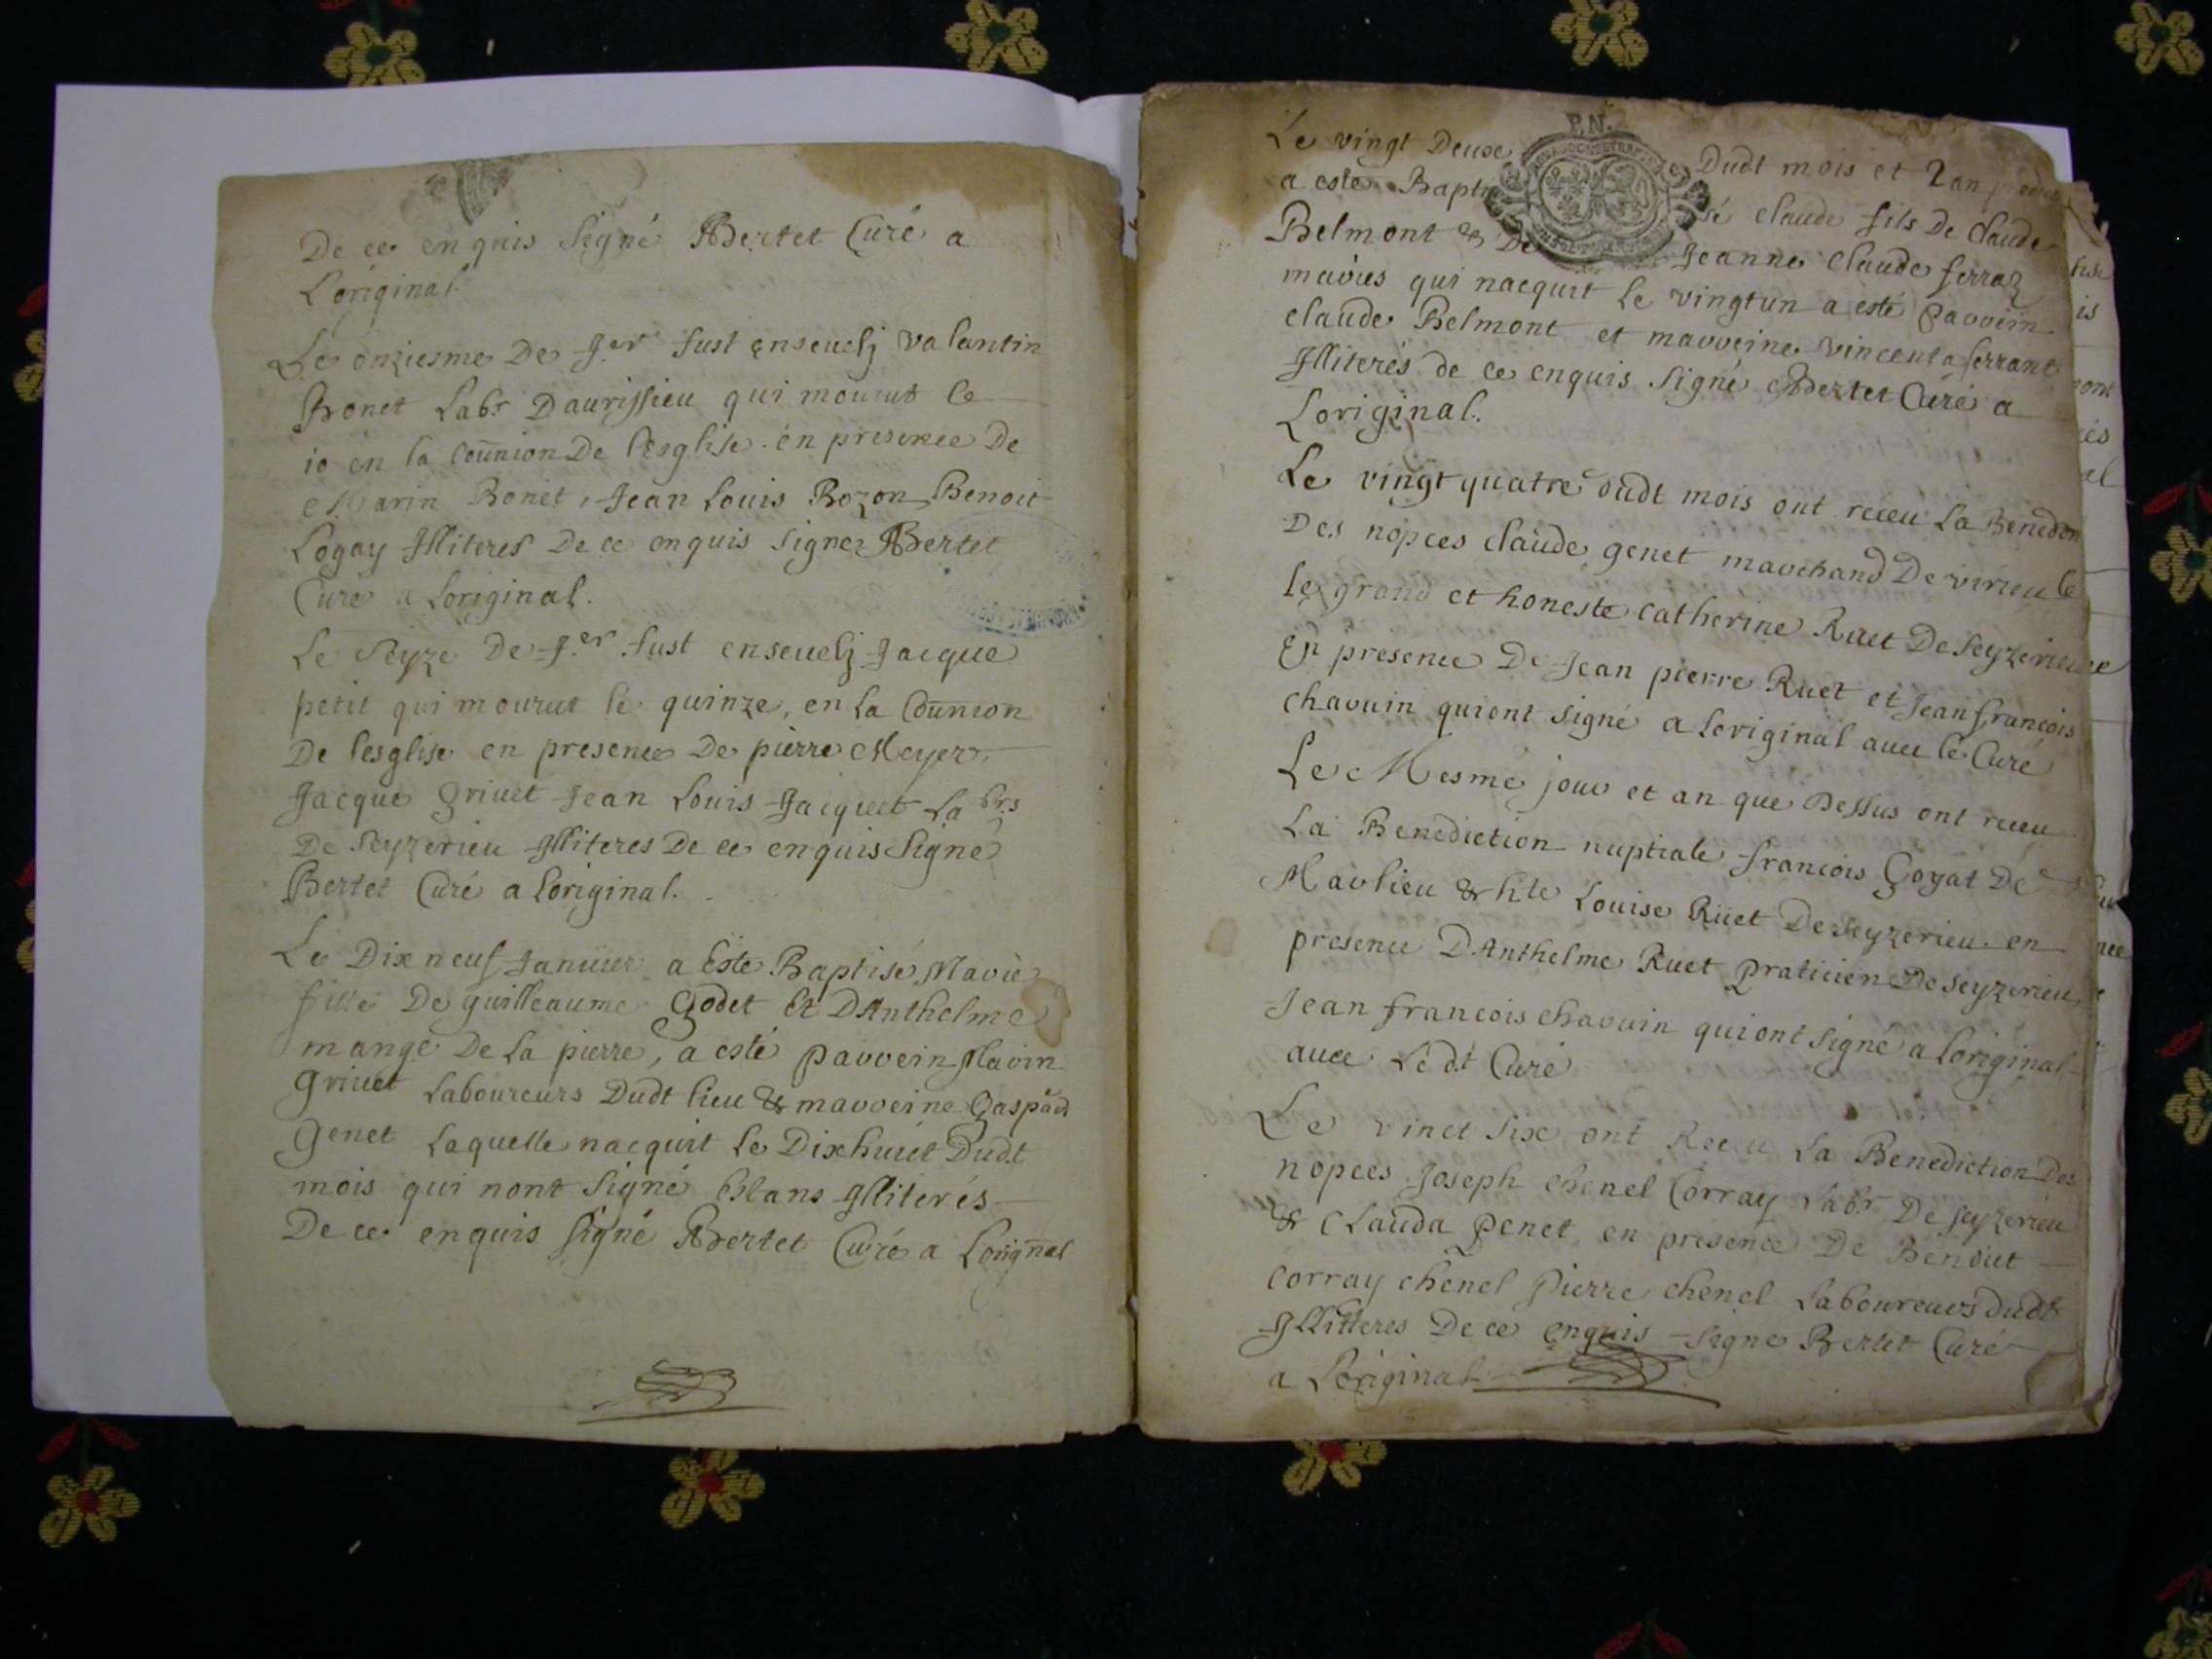 De ce enquis Signé Bertet Curé a
Loriginal.
Le onziesme De Jer fust ensevelj valantin
Bonet Labr Daurissieu qui mourut le
10 en la Coũnion De lEsglise. en presence De
Marin Bonet, Jean Louis Bozon Benoit
Logay Illiteres De ce enquis Signez Bertet
Curé a Loriginal.
Le Seyze De J.er fust ensevelj Jacque
petit qui mourut le quinze, en la Coũnion
De lesglise en presence De pierre Meyer,
Jacque grivet Jean Louis Jacquet Labrs
De Seyzerieu Illiteres De ce enquis Signé
Bertet Curé a Loriginal.
Le Dix neuf Januier a Este Baptisé Marie
fille De guilleaume Godet Et DAnthelme
mange De La pierre, a esté parrein Marin
grivet Laboureurs Dudt lieu & marreine Gaspãd
Genet Laquelle nacquit le Dixhuict Dudt
mois qui nont Signé Estans Illiterés
De ce enquis signé Bertet Curé a Lorignãl
EN.
Le vingt Deuxe Dudt mois et an
a este Baptisé claude fils De Claude
Belmont & De Jeanne Claude ferraz
mariés qui nacquit le vingtun a esté parrein
claude Belmont et marreine vincenta ferrant
Illiterés de ce enquis Signé Bertet Curé a
Loriginal.
Le vingt quatre dudt mois ont receu La Benedon
Des nopces claude genet marchand De virieu le
le grand et honeste catherine Ruet De Seyzerieu
En presence De Jean pierre Ruet et Jean francois
charvin qui ont signé a Loriginal avec le Curé
Le Mesme jour et an que Dessus ont receu
La Benediction nuptiale francois Goyat De
Marlieu & hte Louise Rüet De Seyzerieu en
presence DAnthelme Ruet praticien De Seyzerieu,
Jean francois charvin qui ont signé a Loriginal
avec Le dt Curé
Le vinct Six ont Receu La Benediction Des
nopces Joseph chenel Corray Labr De Seyzerieu
& Clauda penet, en presence De Benoict
corray chenel pierre chenel Laboureurs dudt
Illitteres De ce enquis Signe Bertet Curé
a Loriginal